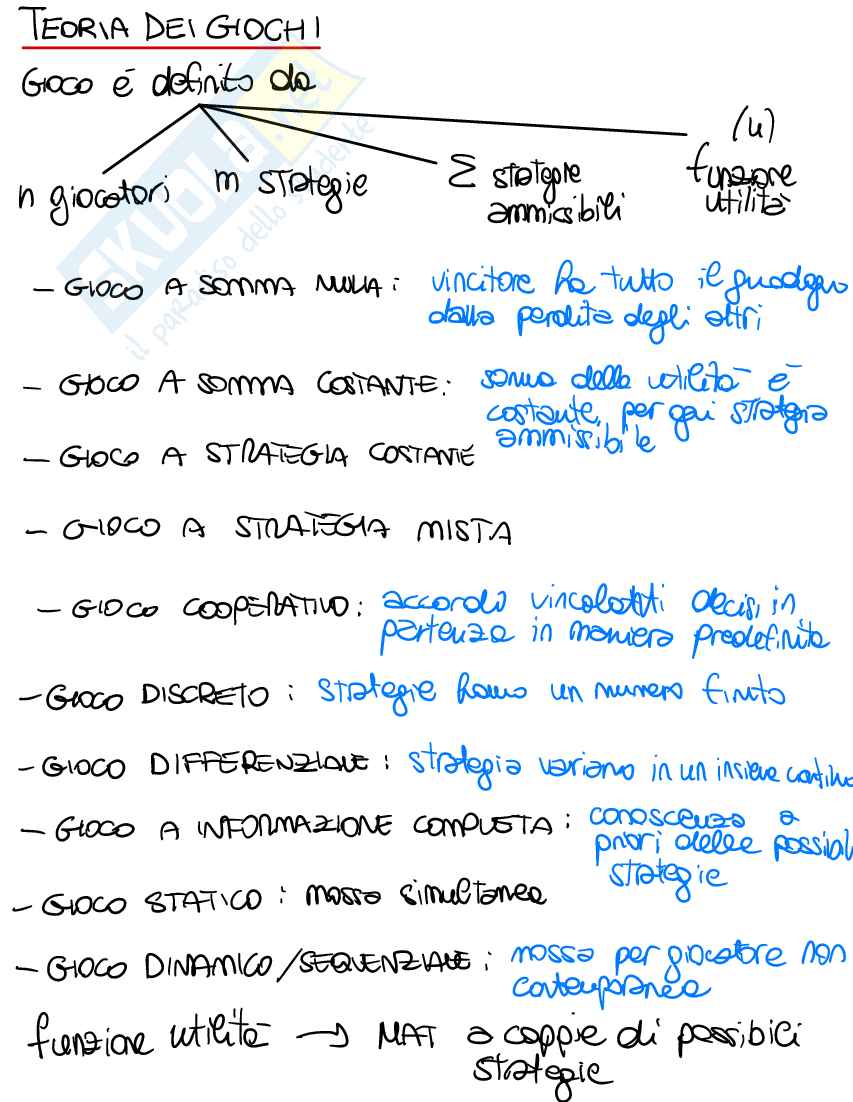 TEORIA DEI GIOCHI
GIOCO è definito da
n giocatori m strategie Σ strategie ammissibili (u) funzione utilità
- GIOCO A SOMMA NULLA : vincitore ha tutto il guadagno
dalla perdita degli altri
- GIOCO A SOMMA COSTANTE : somma delle utilità è
costante, per ogni strategia
ammissibile
- GIOCO A STRATEGIA COSTANTE
- GIOCO A STRATEGIA MISTA
- GIOCO COOPERATIVO : decisi in
partenza in maniera predefinita
- GIOCO DISCRETO : strategie hanno un numero finito
- GIOCO DIFFERENZIALE : strategia variano in un insieme
- GIOCO A INFORMAZIONE COMPLETA : conoscenza a
priori delle possibil
strategie
- GIOCO STATICO : mossa simultanea
- GIOCO DINAMICO/SEQUENZIALE : mossa per giocatore non
contemporanea
funzione utilità → MAT a coppie di possibili
strategie
SKUOLA.net
il paradiso dello studente